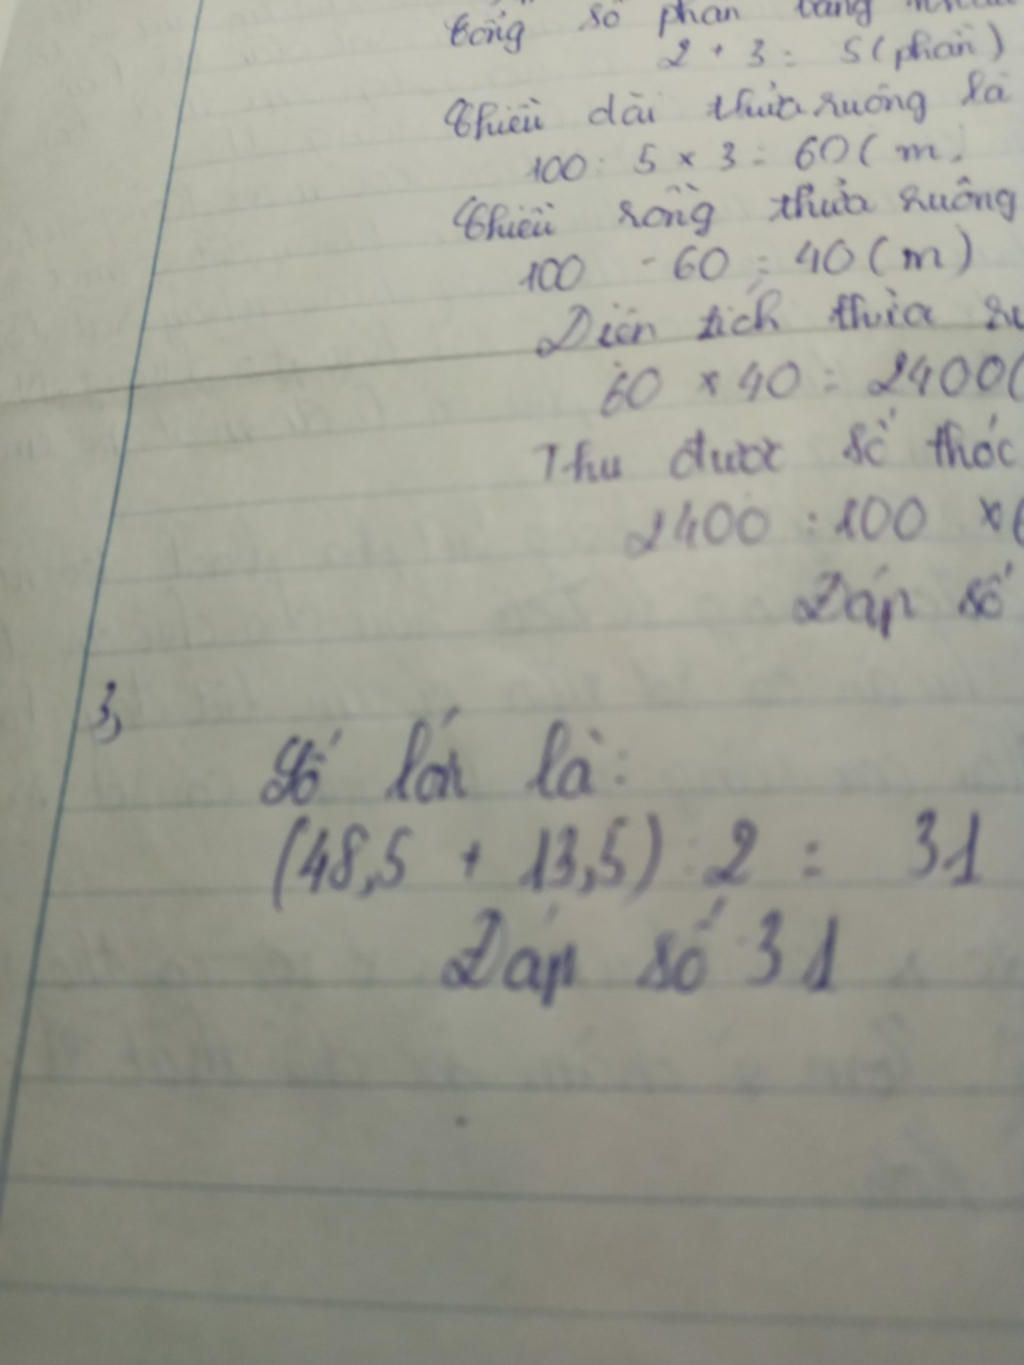 Tổng số phần bằng
2 + 3 = 5 (phần)
Chiều dài thửa ruộng là
100 : 5 x 3 = 60 ( m
Chiều rộng thửa ruộng
100 - 60 = 40 ( m )
Diện tích thửa
60 x 40 = 2400 (
Thu được số thóc
2400 : 100 x
Đáp số
3,
Số lớn là :
(48,5 + 13,5) : 2 = 31
Đáp số 31